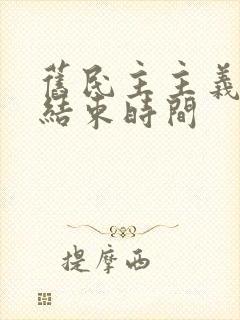 舊民主主義
結束時間
提摩西